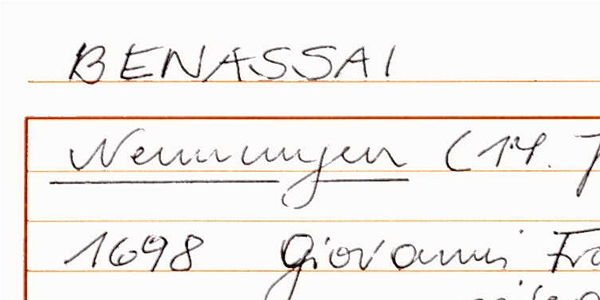 BENASSAI
Nennungen (14.
1698 Giovanni